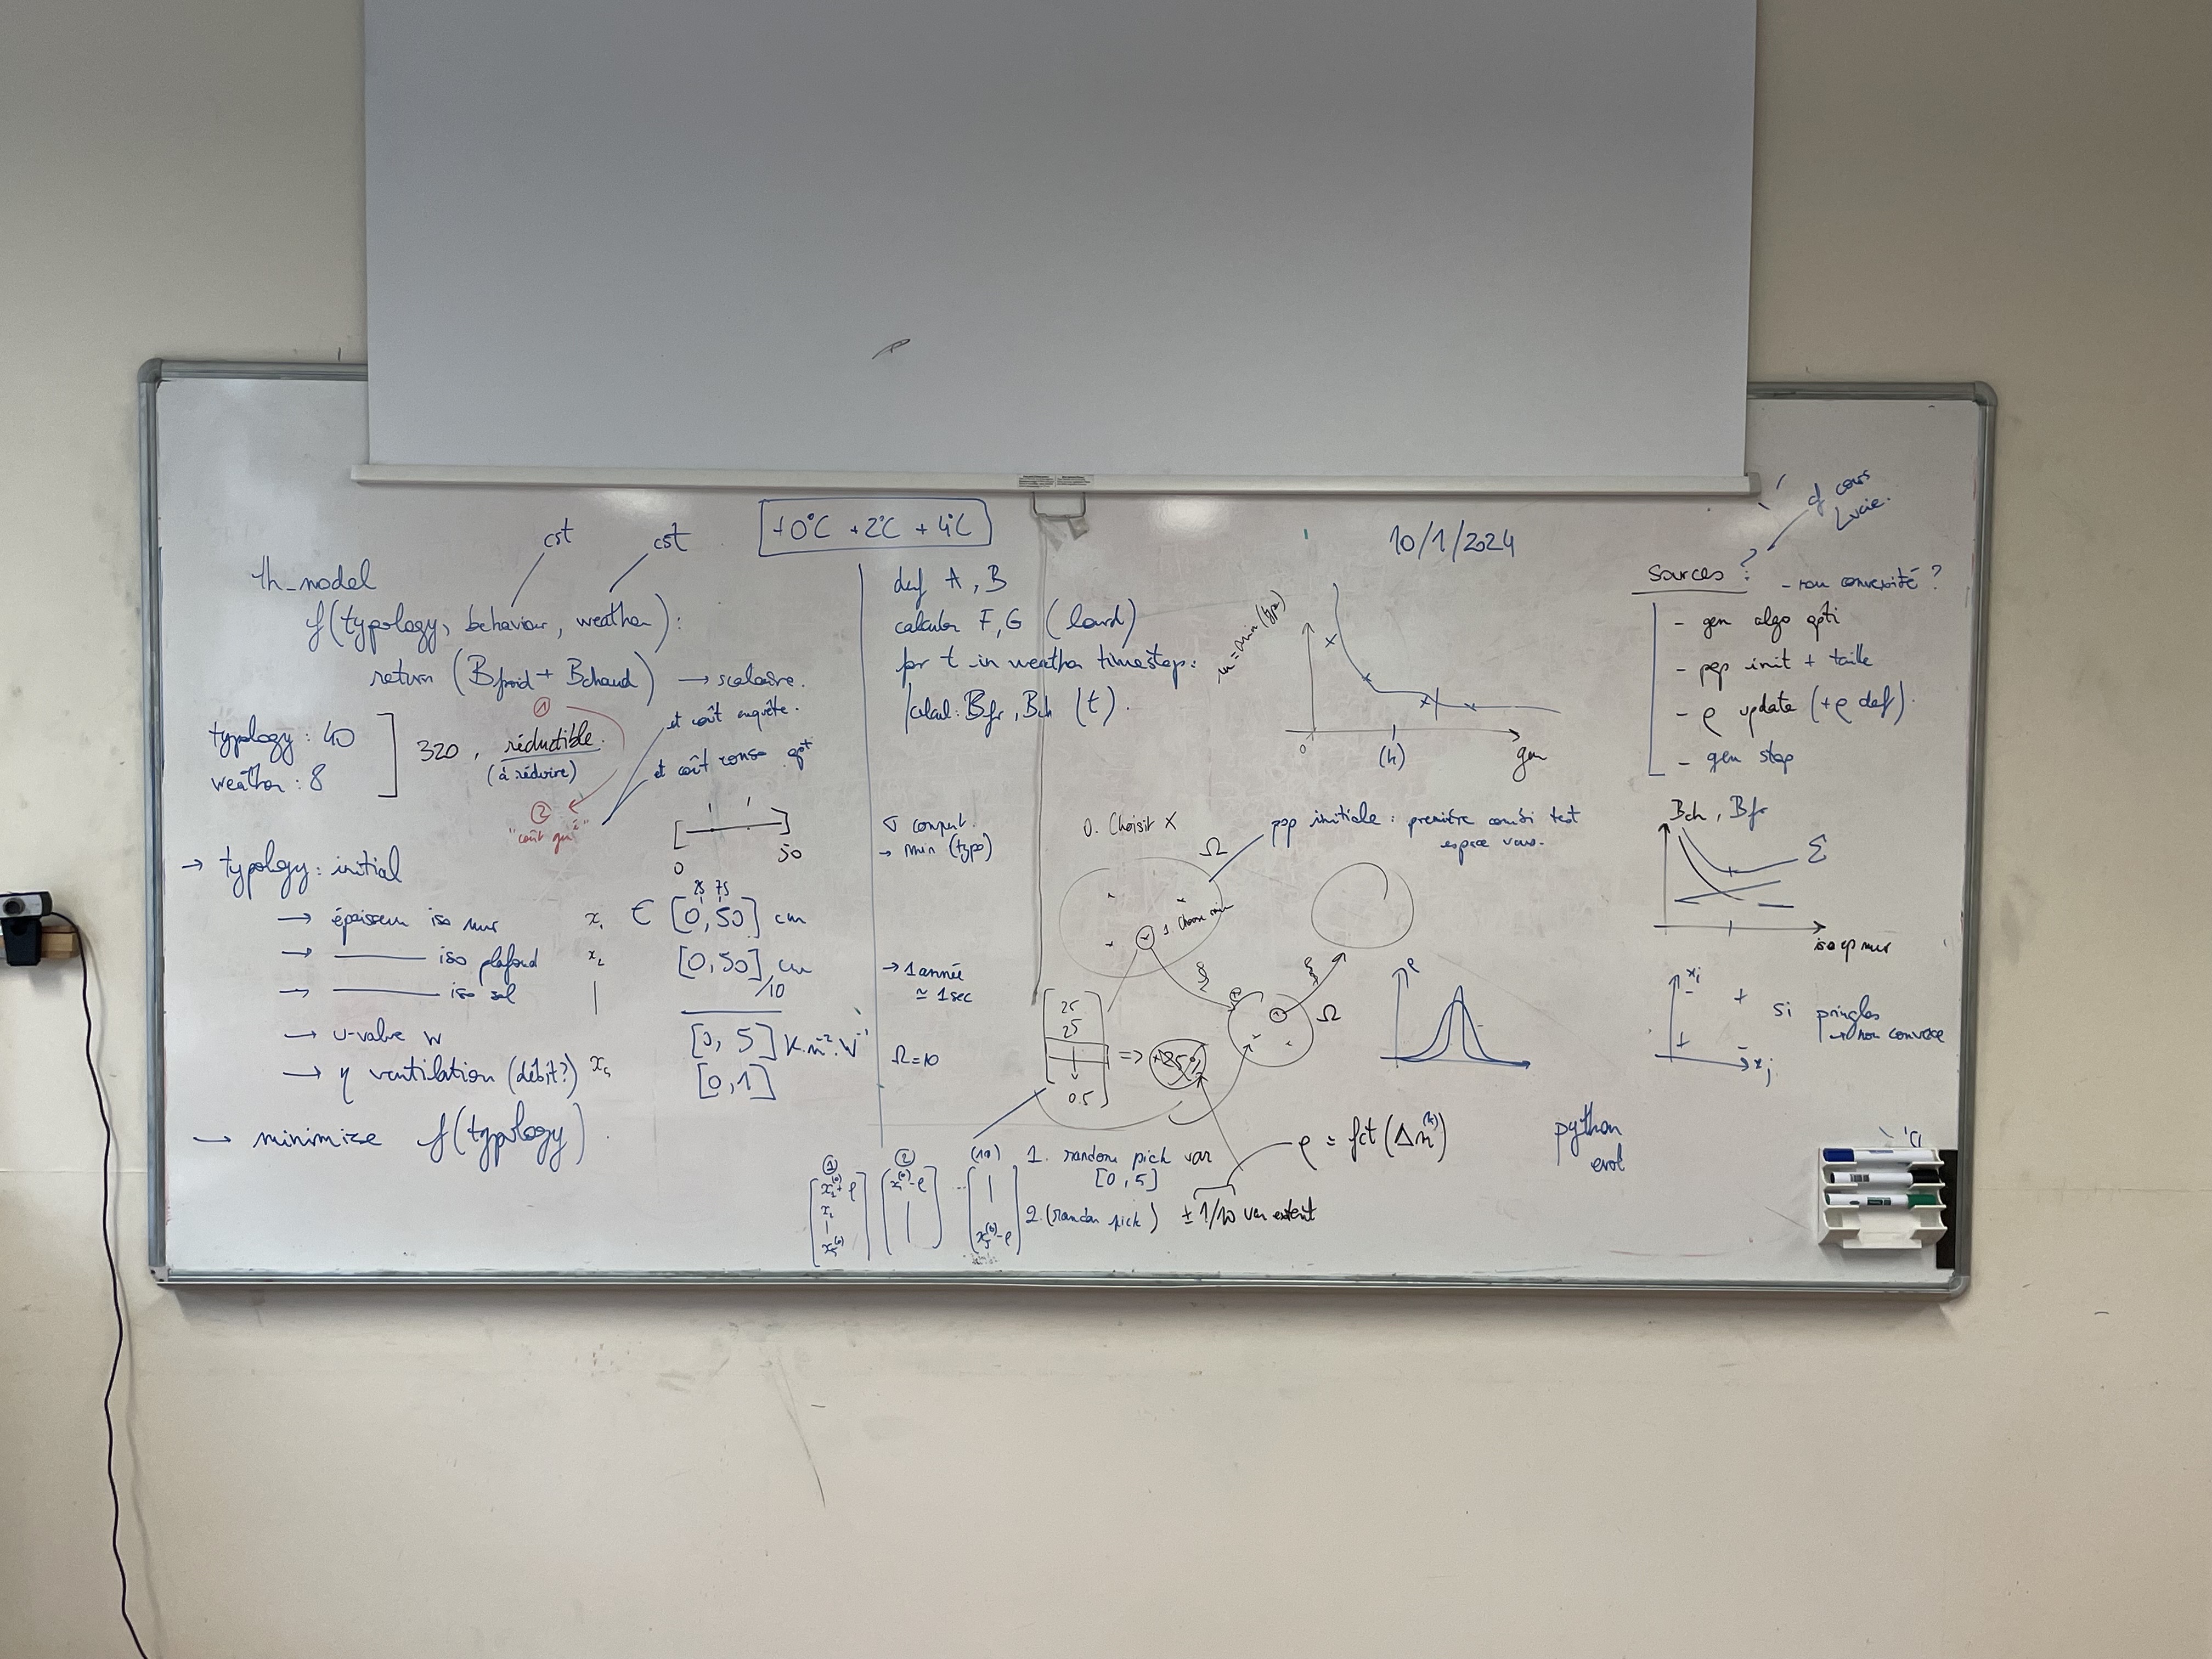 cst
cst
+0°C +2°C +4°C
th_model
f(typology, behaviour, weather):
return (Bfroid + Bchaud) → scalaire.
typology: 40
weather: 8
320, réductible.
(à réduire)
①
②
et coût enquête.
et coût conso opt
[0 50]
→ typology: initial
→ épaisseur iso mur x₁ ∈ [0, 50] cm
25 75
→ ——— iso plafond x₂ [0, 50] cm
/10
→ ——— iso sol |
→ u-value w [0, 5] K.m⁻².W⁻¹
→ η ventilation (débit?) x₅ [0, 1]
→ minimize f(typology).
def A, B
calculer F, G (lourd)
for t in weather timestep:
calcul: Bfr, Bch (t).
σ comput.
→ min (typo)
→ 1 année
≃ 1 sec
Ω=10
10/1/2024
m = min (typo)
0
(k)
gen
0. Choisit X
Ω
pop initiale: première combi test
espace vars.
1 Choose min
ξ
ξ
Ω
25
25
0.5
=>
ρ
ρ = fct (Δm⁽ᵏ⁾)
①
②
(10)
x₁⁽⁰⁾+ρ
x₂
|
x₅⁽⁰⁾
x₁⁽⁰⁾-ρ
|
...
|
x₅⁽⁰⁾-ρ
1. random pick var
[0, 5]
2. (random pick) ± 1/10 var extent
cf cours
Lucie.
Sources ?
- non convexité ?
- gen algo opti
- pop init + taille
- ρ update (+ρ def).
- gen stop
Bch, Bfr
Σ
iso ep mur
xᵢ
xⱼ
+
+
-
-
si pringles
→ non convexe
python
evol